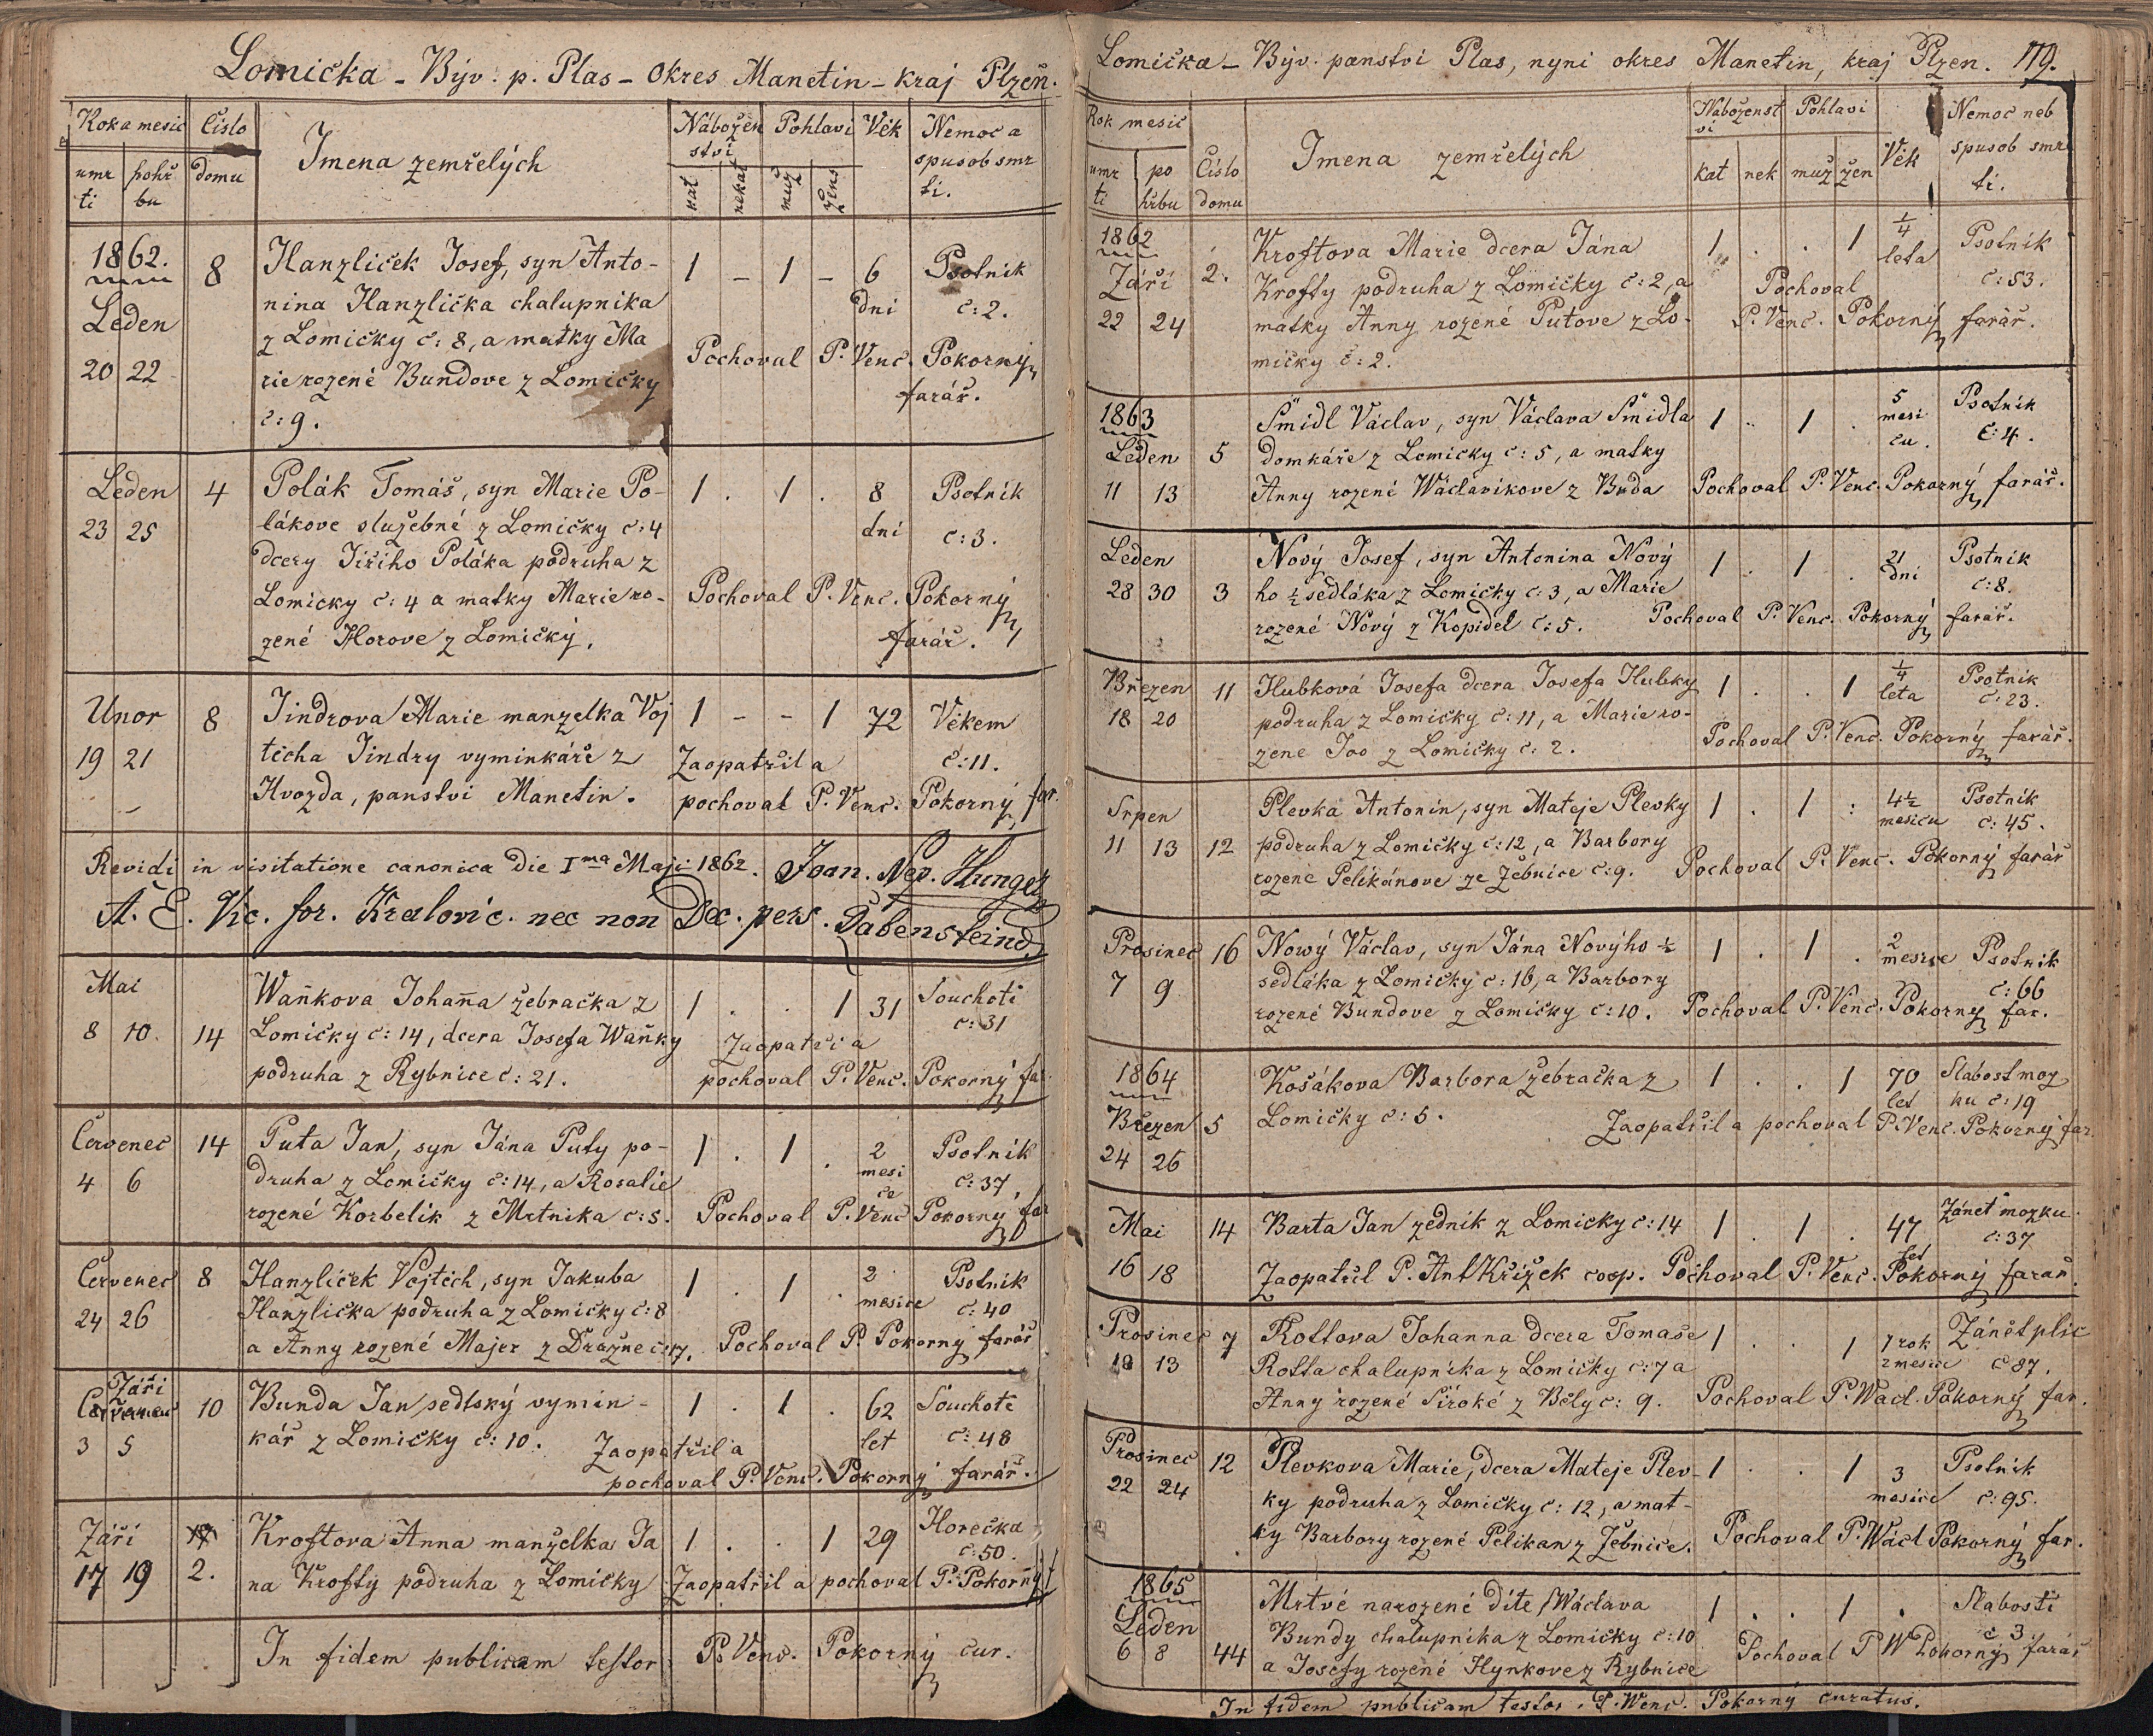 Lomička - Býv. p. Plas - Okres Manetin - kraj Plzeň.
Rok a mesic
Číslo
Jmena zemřelých
Nábožen
ství
Pohlavi
Věk
Nemoc a
spusob smr
ti.
umr
ti
pohř
bu
domu
kat
nekat
muž
žens
1862.
Leden
20 22
8
Hanzliček Josef, syn Anto-
nina Hanzlička chalupnika
z Lomičky č: 8, a matky Ma
rie rozené Bundove z Lomičky
č: 9.
1 - 1 - 6
dni
Psotnik
č: 2.
Pochoval P. Venc. Pokorný
farář.
Leden
23 25
4
Polák Tomáš, syn Marie Po-
lákove služebné z Lomičky č: 4
dcery Jiřiho Poláka podruha z
Lomicky č: 4 a matky Marie ro-
zené Horove z Lomičký.
1 . 1 . 8
dni
Psotnik
č: 3.
Pochoval P. Venc. Pokorný
farář.
Unor
19 21
8
Jindrova Marie manzelka Voj
těcha Jindry vyminkáře z
Hvozda, panstvi Manetin.
1 - - 1 72 Věkem
č: 11.
Zaopatřil a
pochoval P. Venc. Pokorný far.
Revidi in visitatione canonica die Ima Maji 1862. Joan. Nep. Hunger
A. E. Vic. for. Kralovic. nec non Dec. pers.
Mai
8 10.
14
Waňkova Johana žebračka z
Lomičky č: 14, dcera Josefa Waňky
podruha z Rybnice č: 21.
1 . . 1 31 Souchotě
č: 31
Zaopatři a
pochoval P. Venc. Pokorný far
Červenec
4 6
14
Puta Jan, syn Jána Puty po-
druha z Lomičky č: 14, a Rosalie
rozené Korbelik z Mrtnika č: 5.
1 . 1 . 2
mesi
ce
Psotnik
č: 37,
Pochoval P. Venc Pokorný far
Červenec
24 26
8
Hanzliček Vojtěch, syn Jakuba
Hanzlička podruha z Lomičky č: 8
a Anny rozené Majer z Dražne č: 17.
1 . 1 . 2
mesice
Psotnik
č: 40
Pochoval P. Pokorný farář
Září
3 5
10
Bunda Jan, sedlský vymin-
kář z Lomičky č: 10.
1 . 1 . 62
let
Souchotě
č: 48
Zaopatřil a
pochoval P. Venc. Pokorný farář.
Září
17 19
2.
Kroftova Anna manželka Ja
na Krofty podruha z Lomičky
1 . . 1 29 Horečka
č: 50.
Zaopatřil a pochoval P. Pokorný
In fidem publicam testor P. Venc. Pokorný cur.
Lomička - Býv. panstvi Plas, nyni okres Manetin, kraj Plzen. 179.
Rok mesic
umr
ti
po
hřbu
Číslo
domu
Jmena zemřelých
Naboženst
vi
kat nek
Pohlavi
muž žen
Věk
Nemoc neb
spusob smr
ti.
1862
Září
22 24
2.
Kroftova Marie dcera Jána
Krofty podruha z Lomičky č: 2, a
matky Anny rozené Putove z Lo-
mičky č: 2.
1 . . 1 1/4
leta
Psotnik
č: 53.
Pochoval
P. Venc. Pokorný farář.
1863
Leden
11 13
5
Šmidl Václav, syn Václava Šmidla
domkáře z Lomičky č: 5, a matky
Anny rozené Wáclavikove z Buda
1 . 1 . 5
mesi
cu.
Psotnik
č: 4.
Pochoval P. Venc. Pokorný farář.
Leden
28 30
3
Nový Josef, syn Antonina Nový
ho ½ sedláka z Lomičky č: 3, a Marie
rozené Nový z Kopidel č: 5.
1 . 1 . 21
dni
Psotnik
č: 8.
Pochoval P. Venc. Pokorný farář.
Březen
18 20
11
Hubková Josefa dcera Josefa Hubky
podruha z Lomičky č: 11, a Marie ro-
zene Joo z Lomičky č: 2.
1 . . 1 1/4
leta
Psotnik
č: 23.
Pochoval P. Venc. Pokorný farář.
Srpen
11 13
12
Plevka Antonin, syn Mateje Plevky
podruha z Lomičky č: 12, a Barbory
rozene Pelikánove ze Žebnice č: 9.
1 . 1 : 4½
mesicu
Psotnik
č: 45.
Pochoval P. Venc. Pokorný farář
Prosinec
7 9
16
Nowý Václav, syn Jána Novýho ½
sedláka z Lomičky č: 16, a Barbory
rozené Bundove z Lomičky č: 10.
1 . 1 . 2
mesice
Psotnik
č: 66
Pochoval P. Venc. Pokorný far.
1864
Březen
24 26
5
Košákova Barbora žebračka z
Lomičky č: 5.
1 . . 1 70
let
Slabost moz
ku č: 19
Zaopatřil a pochoval P. Venc. Pokorný far.
Mai
16 18
14
Barta Jan zednik z Lomicky č: 14
1 . 1 . 47
let
Zánět mozku.
č: 37
Zaopatřil P. Ant Křižek coop. Pochoval P. Venc. Pokorný farář.
Prosinec
13
7
Rottova Johanna dcera Tomaše
Rotta chalupnika z Lomičky č: 7 a
Anny rozené Široké z Běly č: 9.
1 . . 1 1 rok
2 mesice
Zánět plic
č 87.
Pochoval P. Wacl. Pokorný far.
Prosinec
22 24
12
Plevkova Marie, dcera Mateje Plev-
ky podruha z Lomičky č: 12, a mat-
ky Barbory rozené Pelikan z Žebnice.
1 . . 1 3
mesice
Psotnik
č: 95.
Pochoval P. Wácl Pokorný far.
1865
Leden
6 8
44
Mrtvé narozené díte Wáclava
Bundy chalupnika z Lomičky č: 10
a Josefy rozené Hynkove z Rybnice
1 . . 1 . Slabosti
č 3.
Pochoval P W Pokorný farář
In fidem publicam testor P. Wenc. Pokorný curatus.